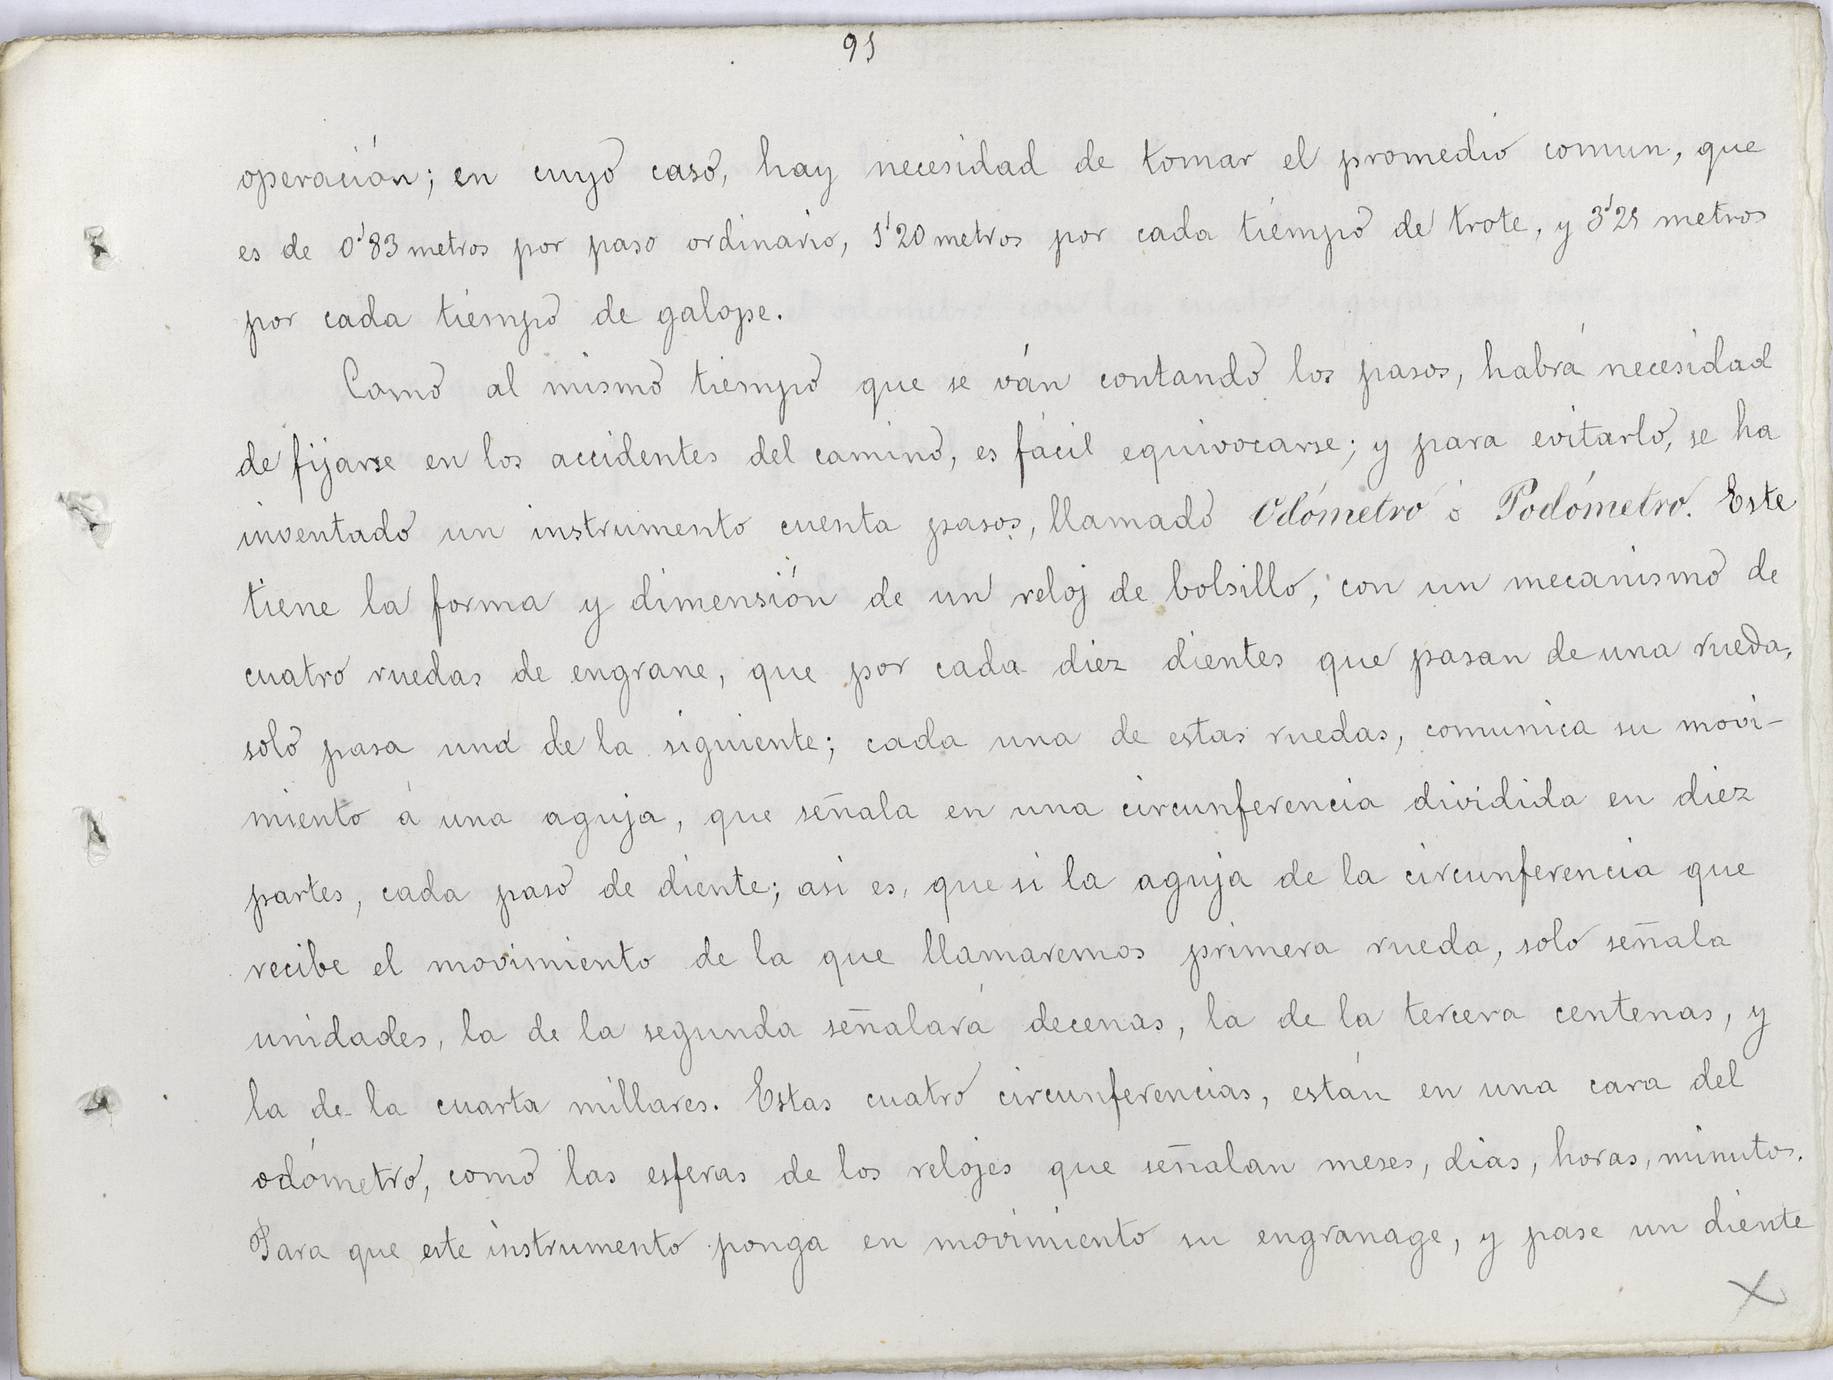 91
operación; en cuyo caso, hay necesidad de tomar el promedio comun, que
es de 0'83 metros por paso ordinario, 1'20 metros por cada tiempo de trote, y 3'25 metros
por cada tiempo de galope.
Como al mismo tiempo que se ván contando los pasos, habrá necesidad
de fijarse en los accidentes del camino, es fácil equivocarse; y para evitarlo, se ha
inventado un instrumento cuenta pasos, llamado Odómetro ó Podómetro. Este
tiene la forma y dimensión de un reloj de bolsillo, con un mecanismo de
cuatro ruedas de engrane, que por cada diez dientes que pasan de una rueda,
solo pasa uno de la siguiente; cada una de estas ruedas, comunica su movi-
miento á una aguja, que señala en una circunferencia dividida en diez
partes, cada paso de diente; asi es, que si la aguja de la circunferencia que
recibe el movimiento de la que llamaremos primera rueda, solo señala
unidades, la de la segunda señalará decenas, la de la tercera centenas, y
la de la cuarta millares. Estas cuatro circunferencias, están en una cara del
odómetro, como las esferas de los relojes que señalan meses, dias, horas, minutos.
Para que este instrumento ponga en movimiento su engranage, y pase un diente